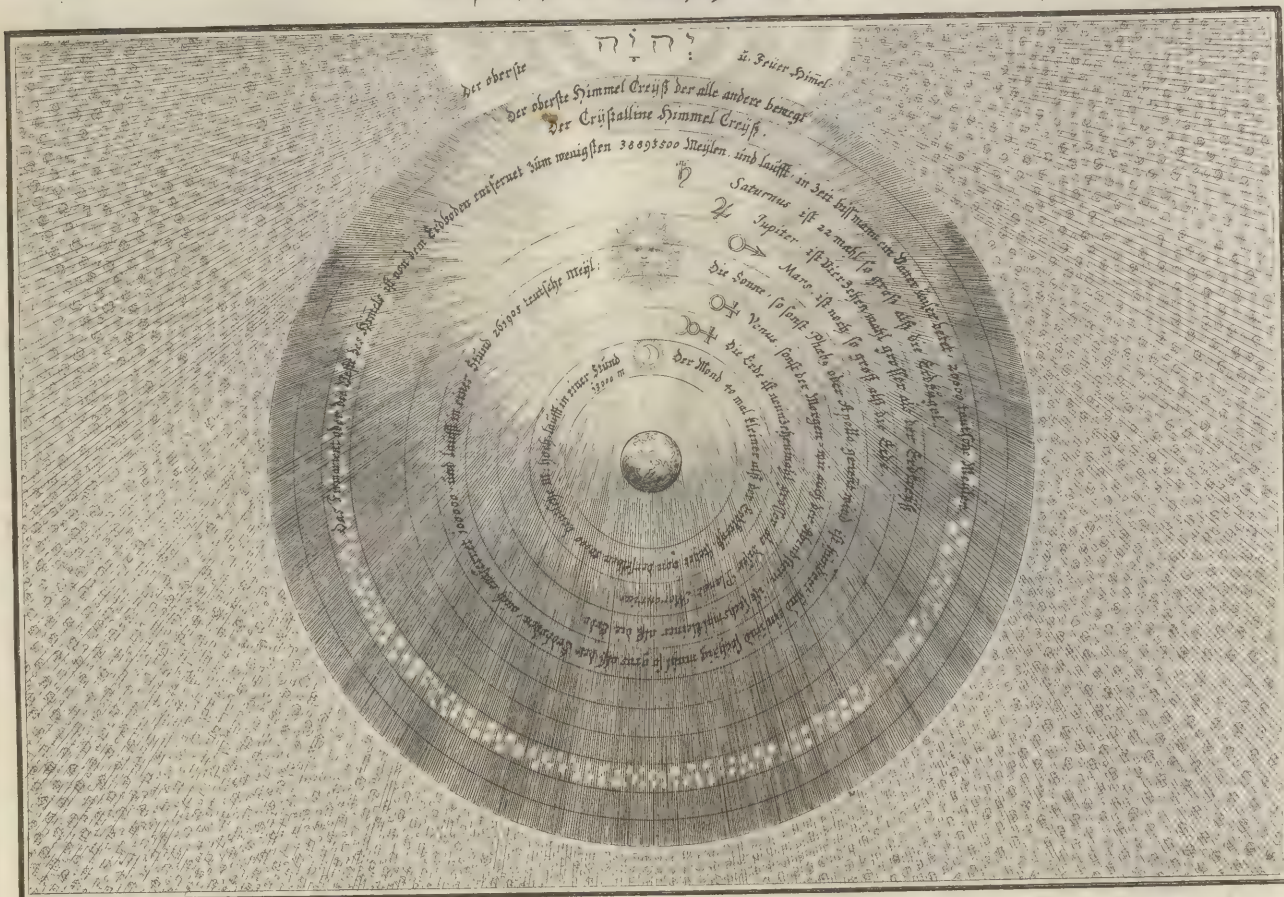 יְהֹוָה
Der oberste ü. Feüer Himel
Der oberste Himmel Creÿß der alle andere bewegt
Der Crÿstalline Himmel Creÿß.
Das Firmament oder des Himels ist von dem Erdboden entfernet züm wenigsten 38895500 Meÿlen. und laüfft, in Zeit biss mann ein Vatter Unser betet 26000 teütsche Meillen
♄ Saturnus ist 22 mahl so groß alß die Erdkügel.
♃ Jupiter ist Vierzehen mahl grösser als der
♂ Mars ist noch so groß alß die Erde
Die Sonne, so sonst Phœb, oder Apollo genent wird ist hundert und ein und sechzig mahl so groß alß der auch entfernet 700000 und laüfft in einer Stünd 261905 teutsche Meÿl:
♀ Venus sonst der Morgen- wie auch der Abendstern ist sechsmahl kleiner alß die Erde
☿ Die Erde ist neunzehenmahl grösser als dieser Planet Mercurius
Der Mond 40 mal kleiner alß der stehet von derselben teutsche m: hoch laüfft in einer Stünd m